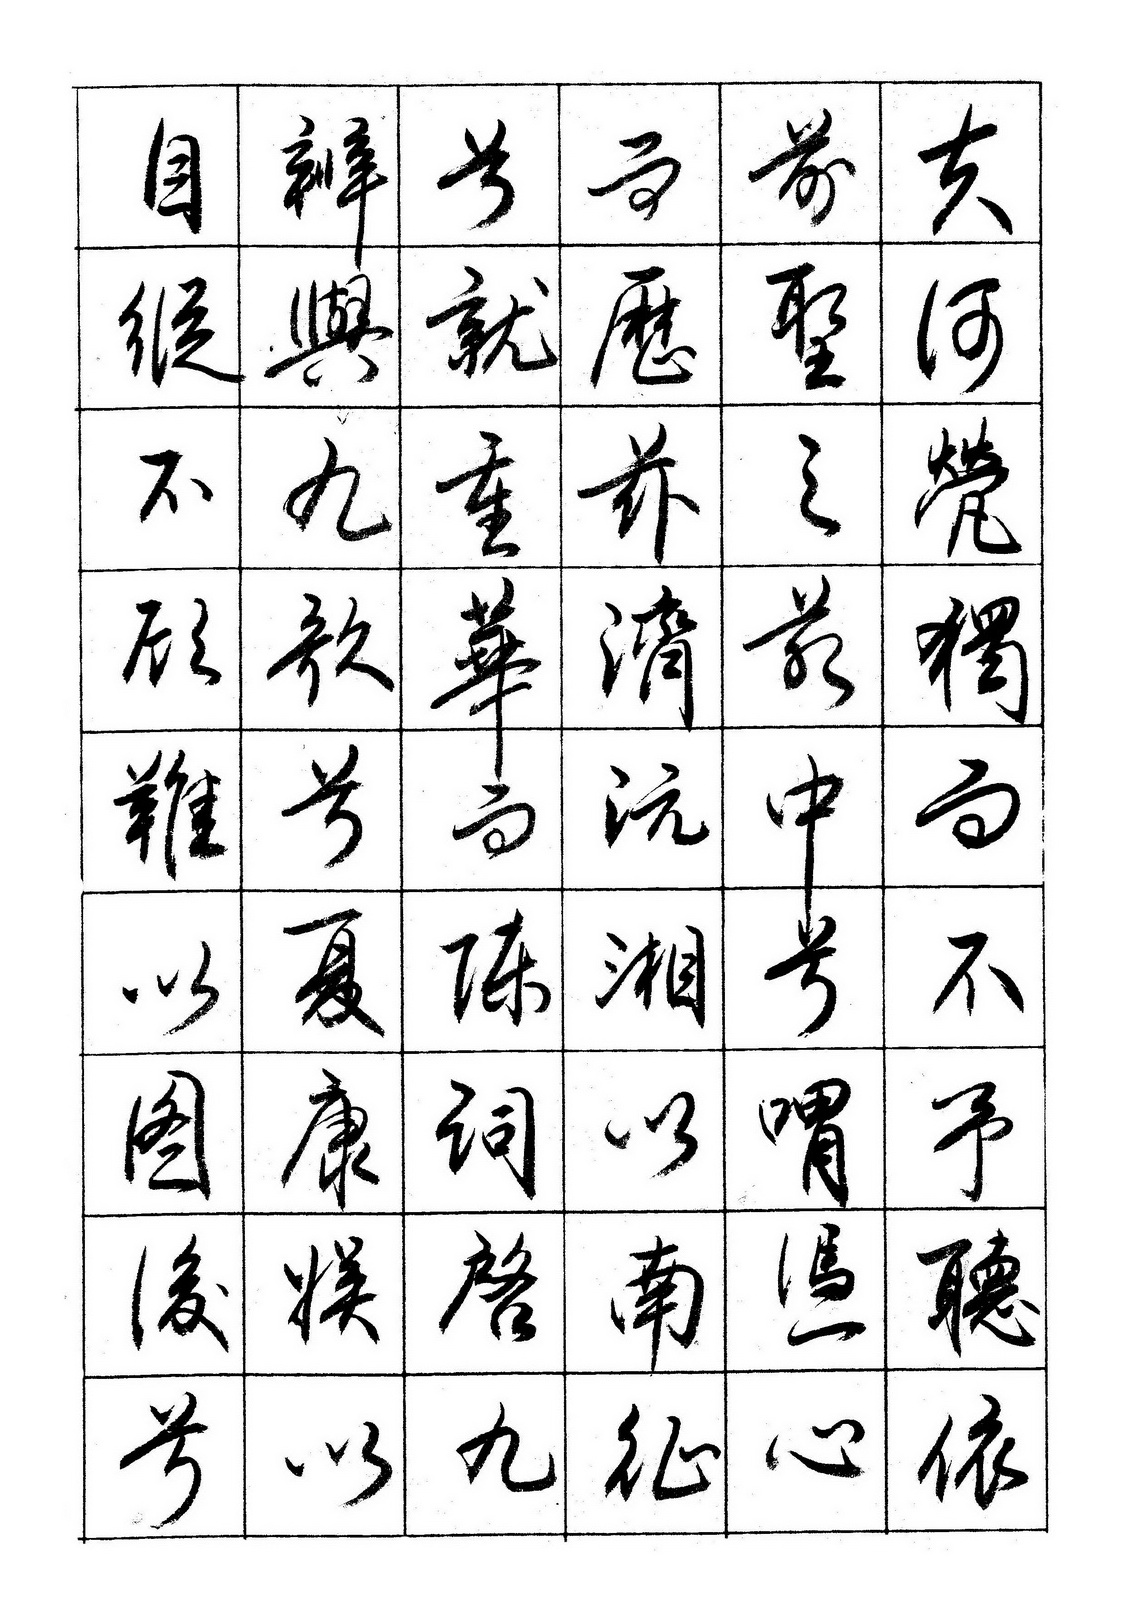 夫何煢獨而不予聽依
前聖之節中兮喟憑心
而歷茲濟沅湘以南征
兮就重華而陳詞啓九
辨與九歌兮夏康娛以
自縱不顧難以图後兮